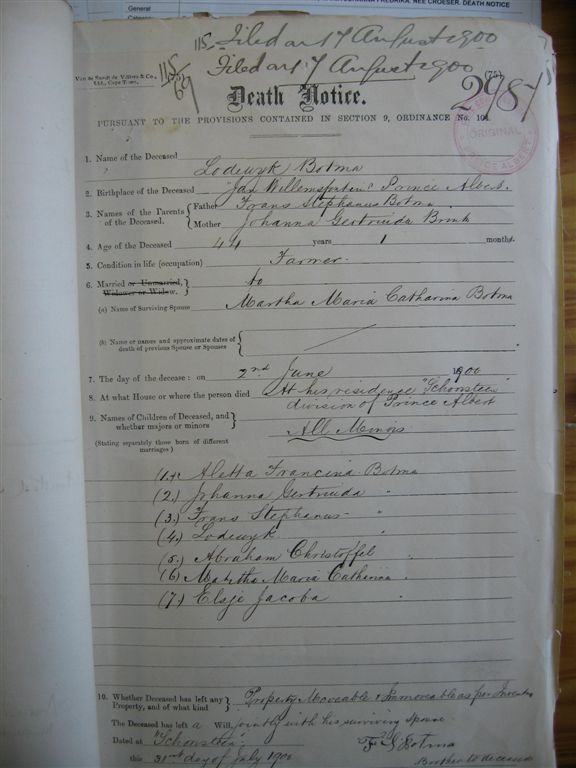 General
FREDRIKA. NEE CROESER. DEATH NOTICE
115. Filed on 17 August 1900
Filed on 17 August 1900
115/69
Van de Sandt de Villiers & Co., Ltd., Cape Town.
(75)
2987
Death Notice.
PURSUANT TO THE PROVISIONS CONTAINED IN SECTION 9, ORDINANCE No. 104.
ORIGINAL
PRINCE ALBERT
1. Name of the Deceased Lodewyk Botma
2. Birthplace of the Deceased "Jan Willemsfontein" Prince Albert.
3. Names of the Parents of the Deceased. Father Frans Stephanus Botma.
Mother Johanna Gertruida Brink
4. Age of the Deceased 44 years 1 months.
5. Condition in life (occupation) Farmer.
6. Married or Unmarried, Widower or Widow. to
(a) Name of Surviving Spouse Martha Maria Catharina Botma
(b) Name or names and approximate dates of death of previous Spouse or Spouses
7. The day of the decease: on 2nd June 1900
8. At what House or where the person died At his residence "Schonsteen"
division of Prince Albert
9. Names of Children of Deceased, and whether majors or minors
All Minors
(Stating separately those born of different marriages)
(1.) Aletta Francina Botma
(2.) Johanna Gertruida "
(3.) Frans Stephanus "
(4.) Lodewyk "
(5.) Abraham Christoffel "
(6) Martha Maria Catharina "
(7) Elsje Jacoba "
10. Whether Deceased has left any Property, and of what kind Property Moveable & Immoveable as per Inventory
The Deceased has left a Will, jointly with his surviving Spouse
Dated at "Schonsteen"
F S Botma
this 31st day of July 1900
Brother to deceased